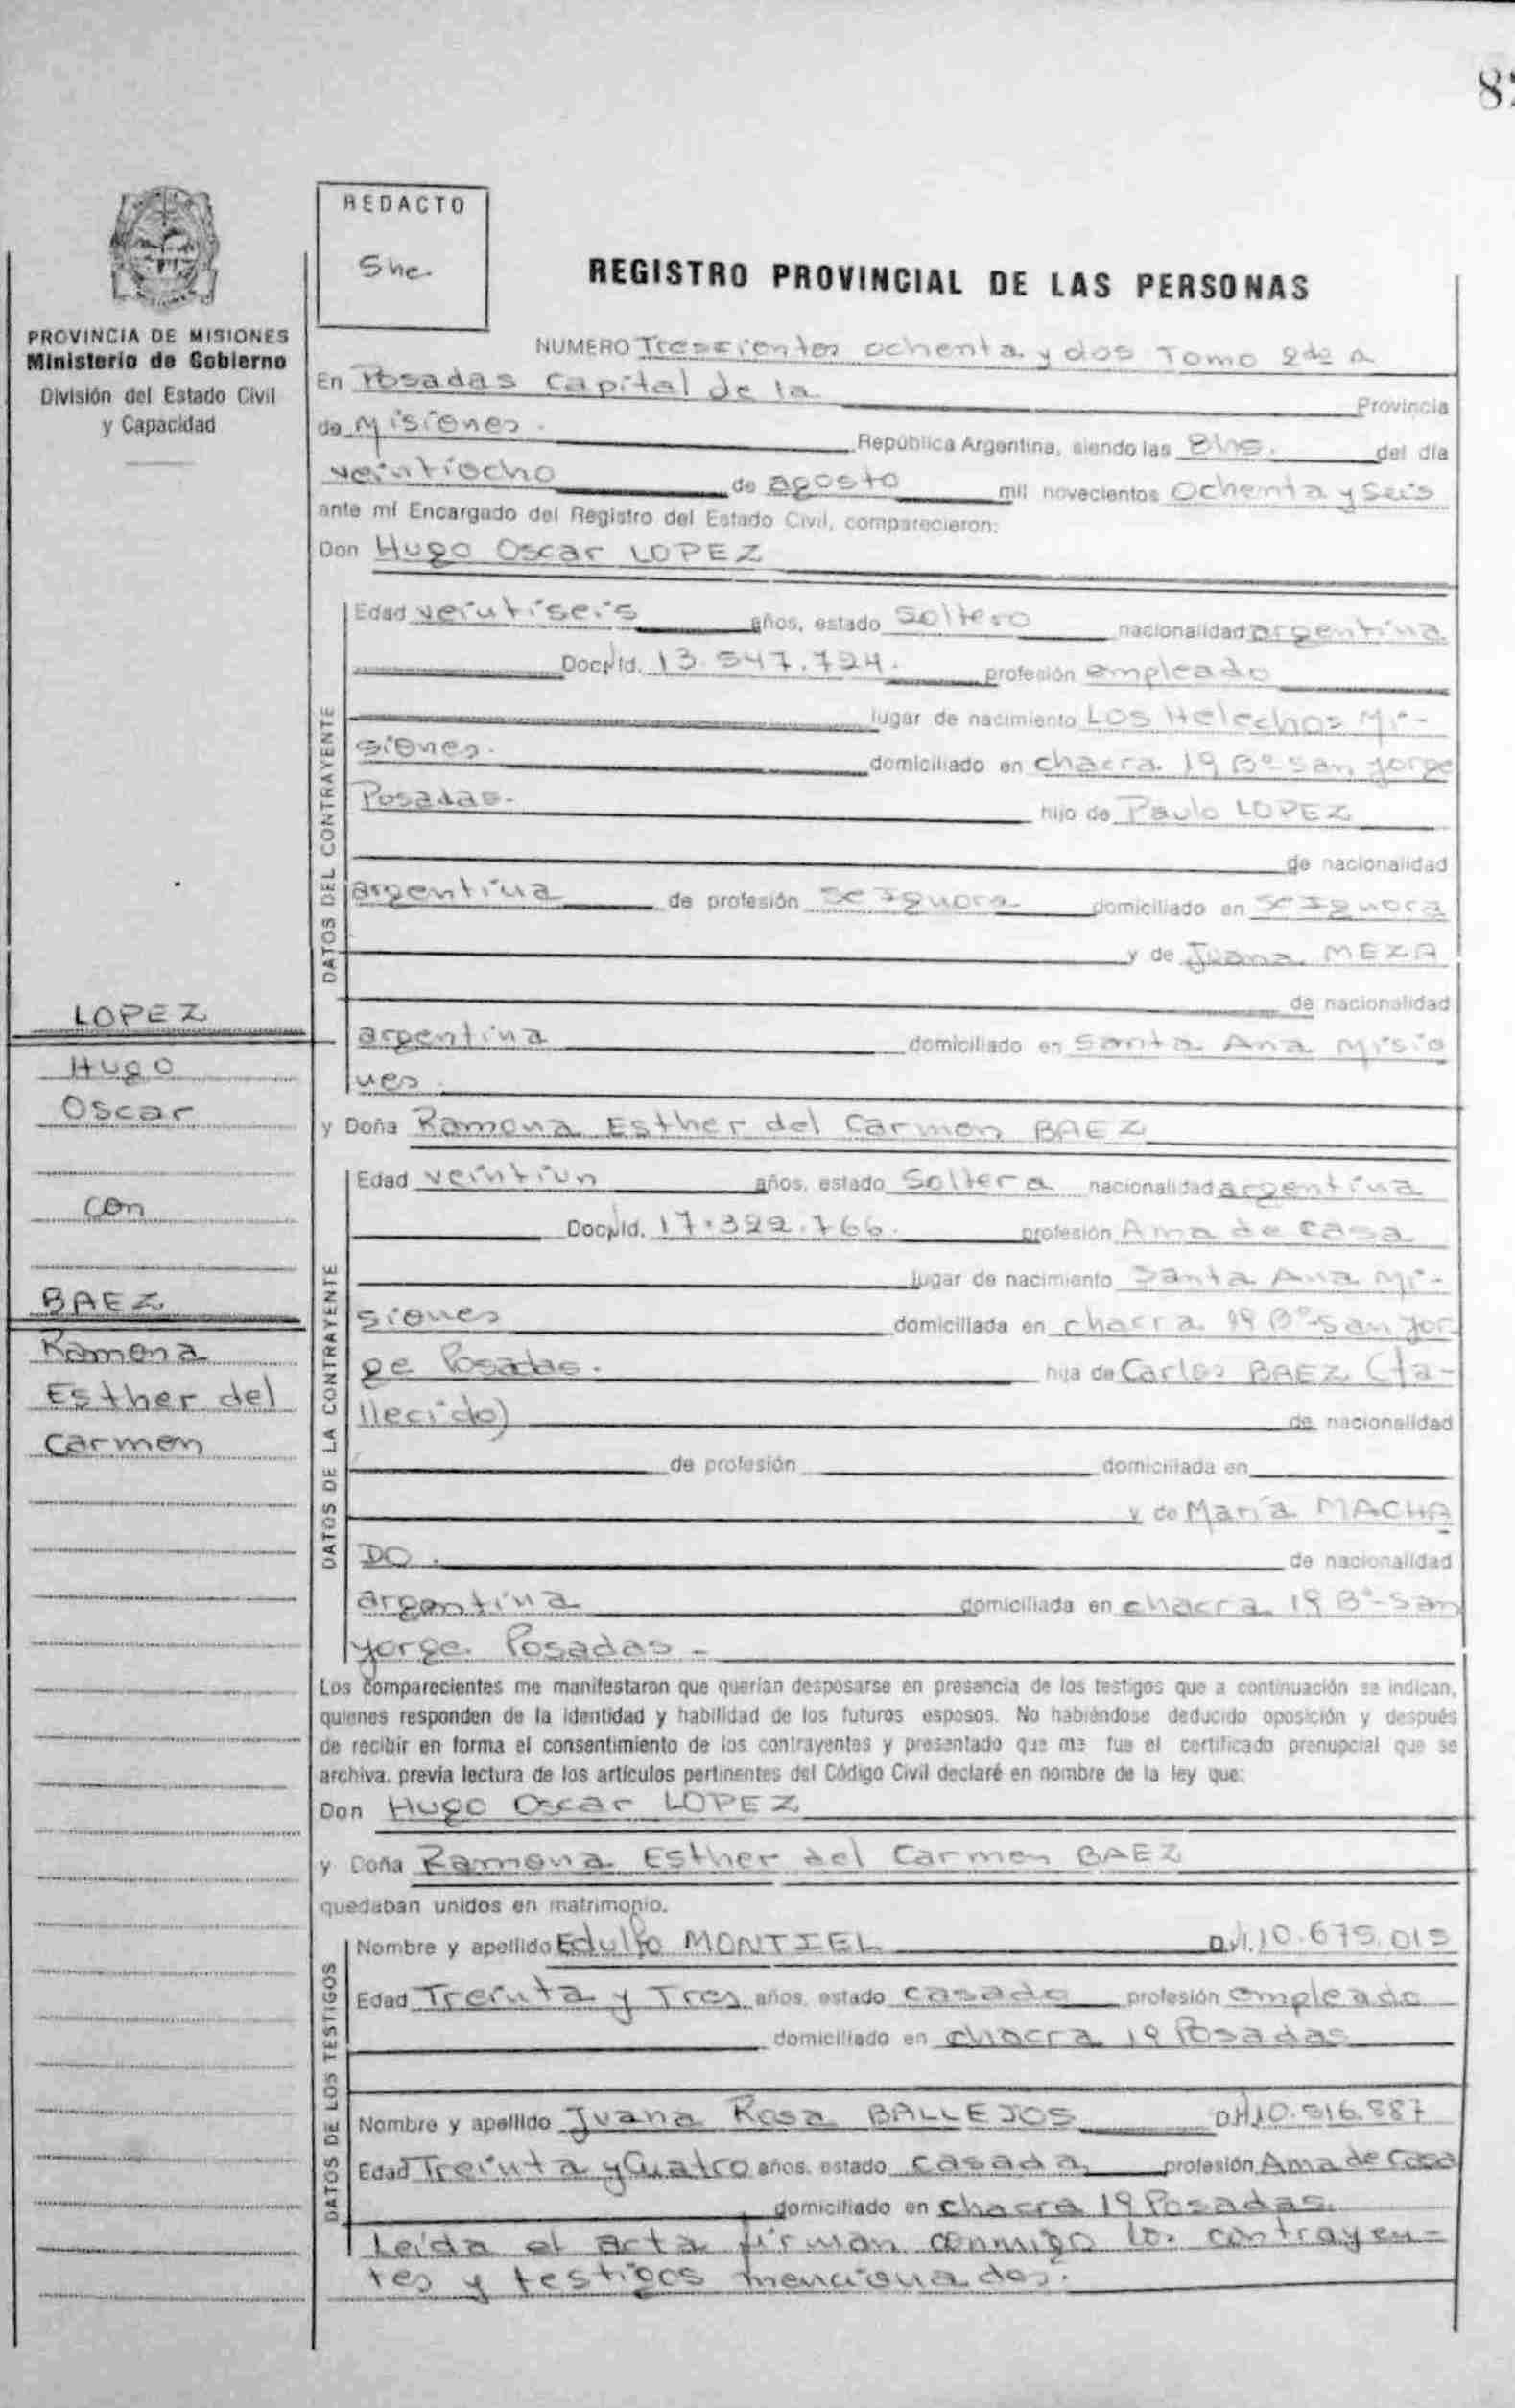 REDACTO
She
PROVINCIA DE MISIONES
Ministerio de Gobierno
División del Estado Civil
y Capacidad
REGISTRO PROVINCIAL DE LAS PERSONAS
NUMERO Trescientos ochenta y dos Tomo 2do A
En Posadas Capital de la Provincia
de Misiones. República Argentina, siendo las 8hs. del día
veintiocho de agosto mil novecientos Ochenta y Seis
ante mí Encargado del Registro del Estado Civil, comparecieron:
Don Hugo Oscar LOPEZ
DATOS DEL CONTRAYENTE
Edad veintiseis años, estado Soltero nacionalidad argentina
Doc. Id. 13.547.724. profesión empleado
lugar de nacimiento Los Helechos Mi-
siones. domiciliado en chacra 19 Bº San Jorge
Posadas- hijo de Paulo LOPEZ
de nacionalidad
argentina de profesión Se Ignora domiciliado en Se Ignora
y de Juana MEZA
de nacionalidad
argentina domiciliado en Santa Ana Misio
nes.
y Doña Ramona Esther del Carmen BAEZ
DATOS DE LA CONTRAYENTE
Edad veintiun años, estado Soltera nacionalidad argentina
Doc. Id. 17.322.766. profesión Ama de casa
lugar de nacimiento Santa Ana Mi-
siones domiciliada en chacra 19 Bº San Jor
ge Posadas. hija de Carlos BAEZ (fa-
llecido) de nacionalidad
de profesión domiciliada en
y de María MACHA
DO. de nacionalidad
argentina domiciliada en chacra 19 Bº San
Jorge Posadas-
Los comparecientes me manifestaron que querían desposarse en presencia de los testigos que a continuación se indican,
quienes responden de la identidad y habilidad de los futuros esposos. No habiéndose deducido oposición y después
de recibir en forma el consentimiento de los contrayentes y presentado que me fue el certificado prenupcial que se
archiva, previa lectura de los artículos pertinentes del Código Civil declaré en nombre de la ley que:
Don Hugo Oscar LOPEZ
y Doña Ramona Esther del Carmen BAEZ
quedaban unidos en matrimonio.
DATOS DE LOS TESTIGOS
Nombre y apellido Edulfo MONTIEL D.I. 10.675.015
Edad Treinta y Tres años, estado casado profesión empleado
domiciliado en chacra 19 Posadas
Nombre y apellido Juana Rosa BALLEJOS 10.516.887
Edad Treinta y Cuatro años, estado casada profesión Ama de Casa
domiciliado en chacra 19 Posadas.
Leída el acta firman conmigo los contrayen-
tes y testigos mencionados.
LOPEZ
Hugo
Oscar
con
BAEZ
Ramona
Esther del
Carmen